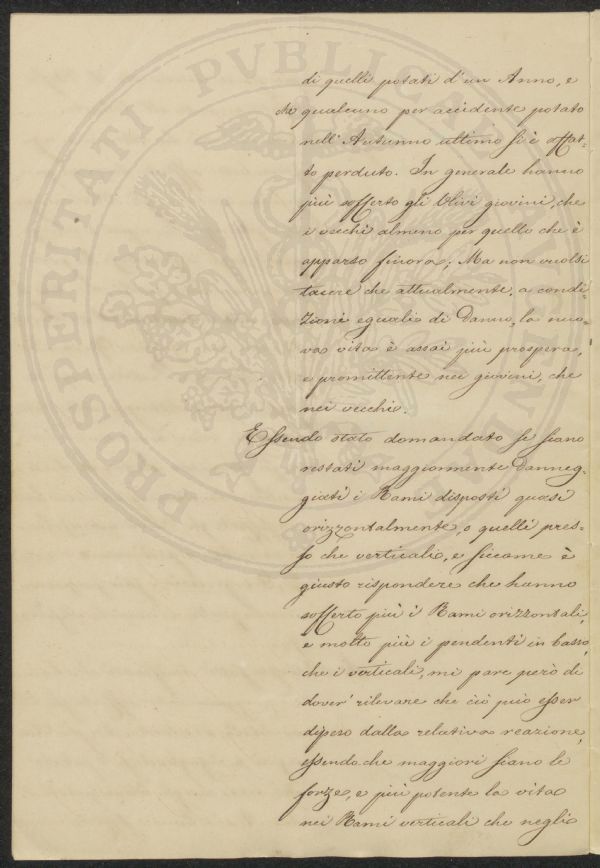 di quelli potati d'un Anno, e
che qualcuno per accidente potato
nell'Autunno ultimo si è affat-
to perduto. In generale hanno
più sofferto gli Olivi giovini, che
i vecchi almeno per quello che è
apparso finora; Ma non vuolsi
tacere che attualmente, a condi-
zioni eguali di Danno, la nuo-
va vita è assai più prospera,
e promittente nei giovini, che
nei vecchi.
Essendo stato domandato se siano
restati maggiormente Danneg-
giati i Rami disposti quasi
orizzontalmente, o quelli pres-
so che verticali, e siccome è
giusto rispondere che hanno
sofferto più i Rami orizzontali,
e molto più i pendenti in basso,
che i verticali, mi pare però di
dover' rilevare che ciò può esser
dipeso dalla relativa reazione,
essendo che maggiori siano le
forze, e più potente la vita
nei Rami verticali che negli
PROSPERITATI PVBLICAE